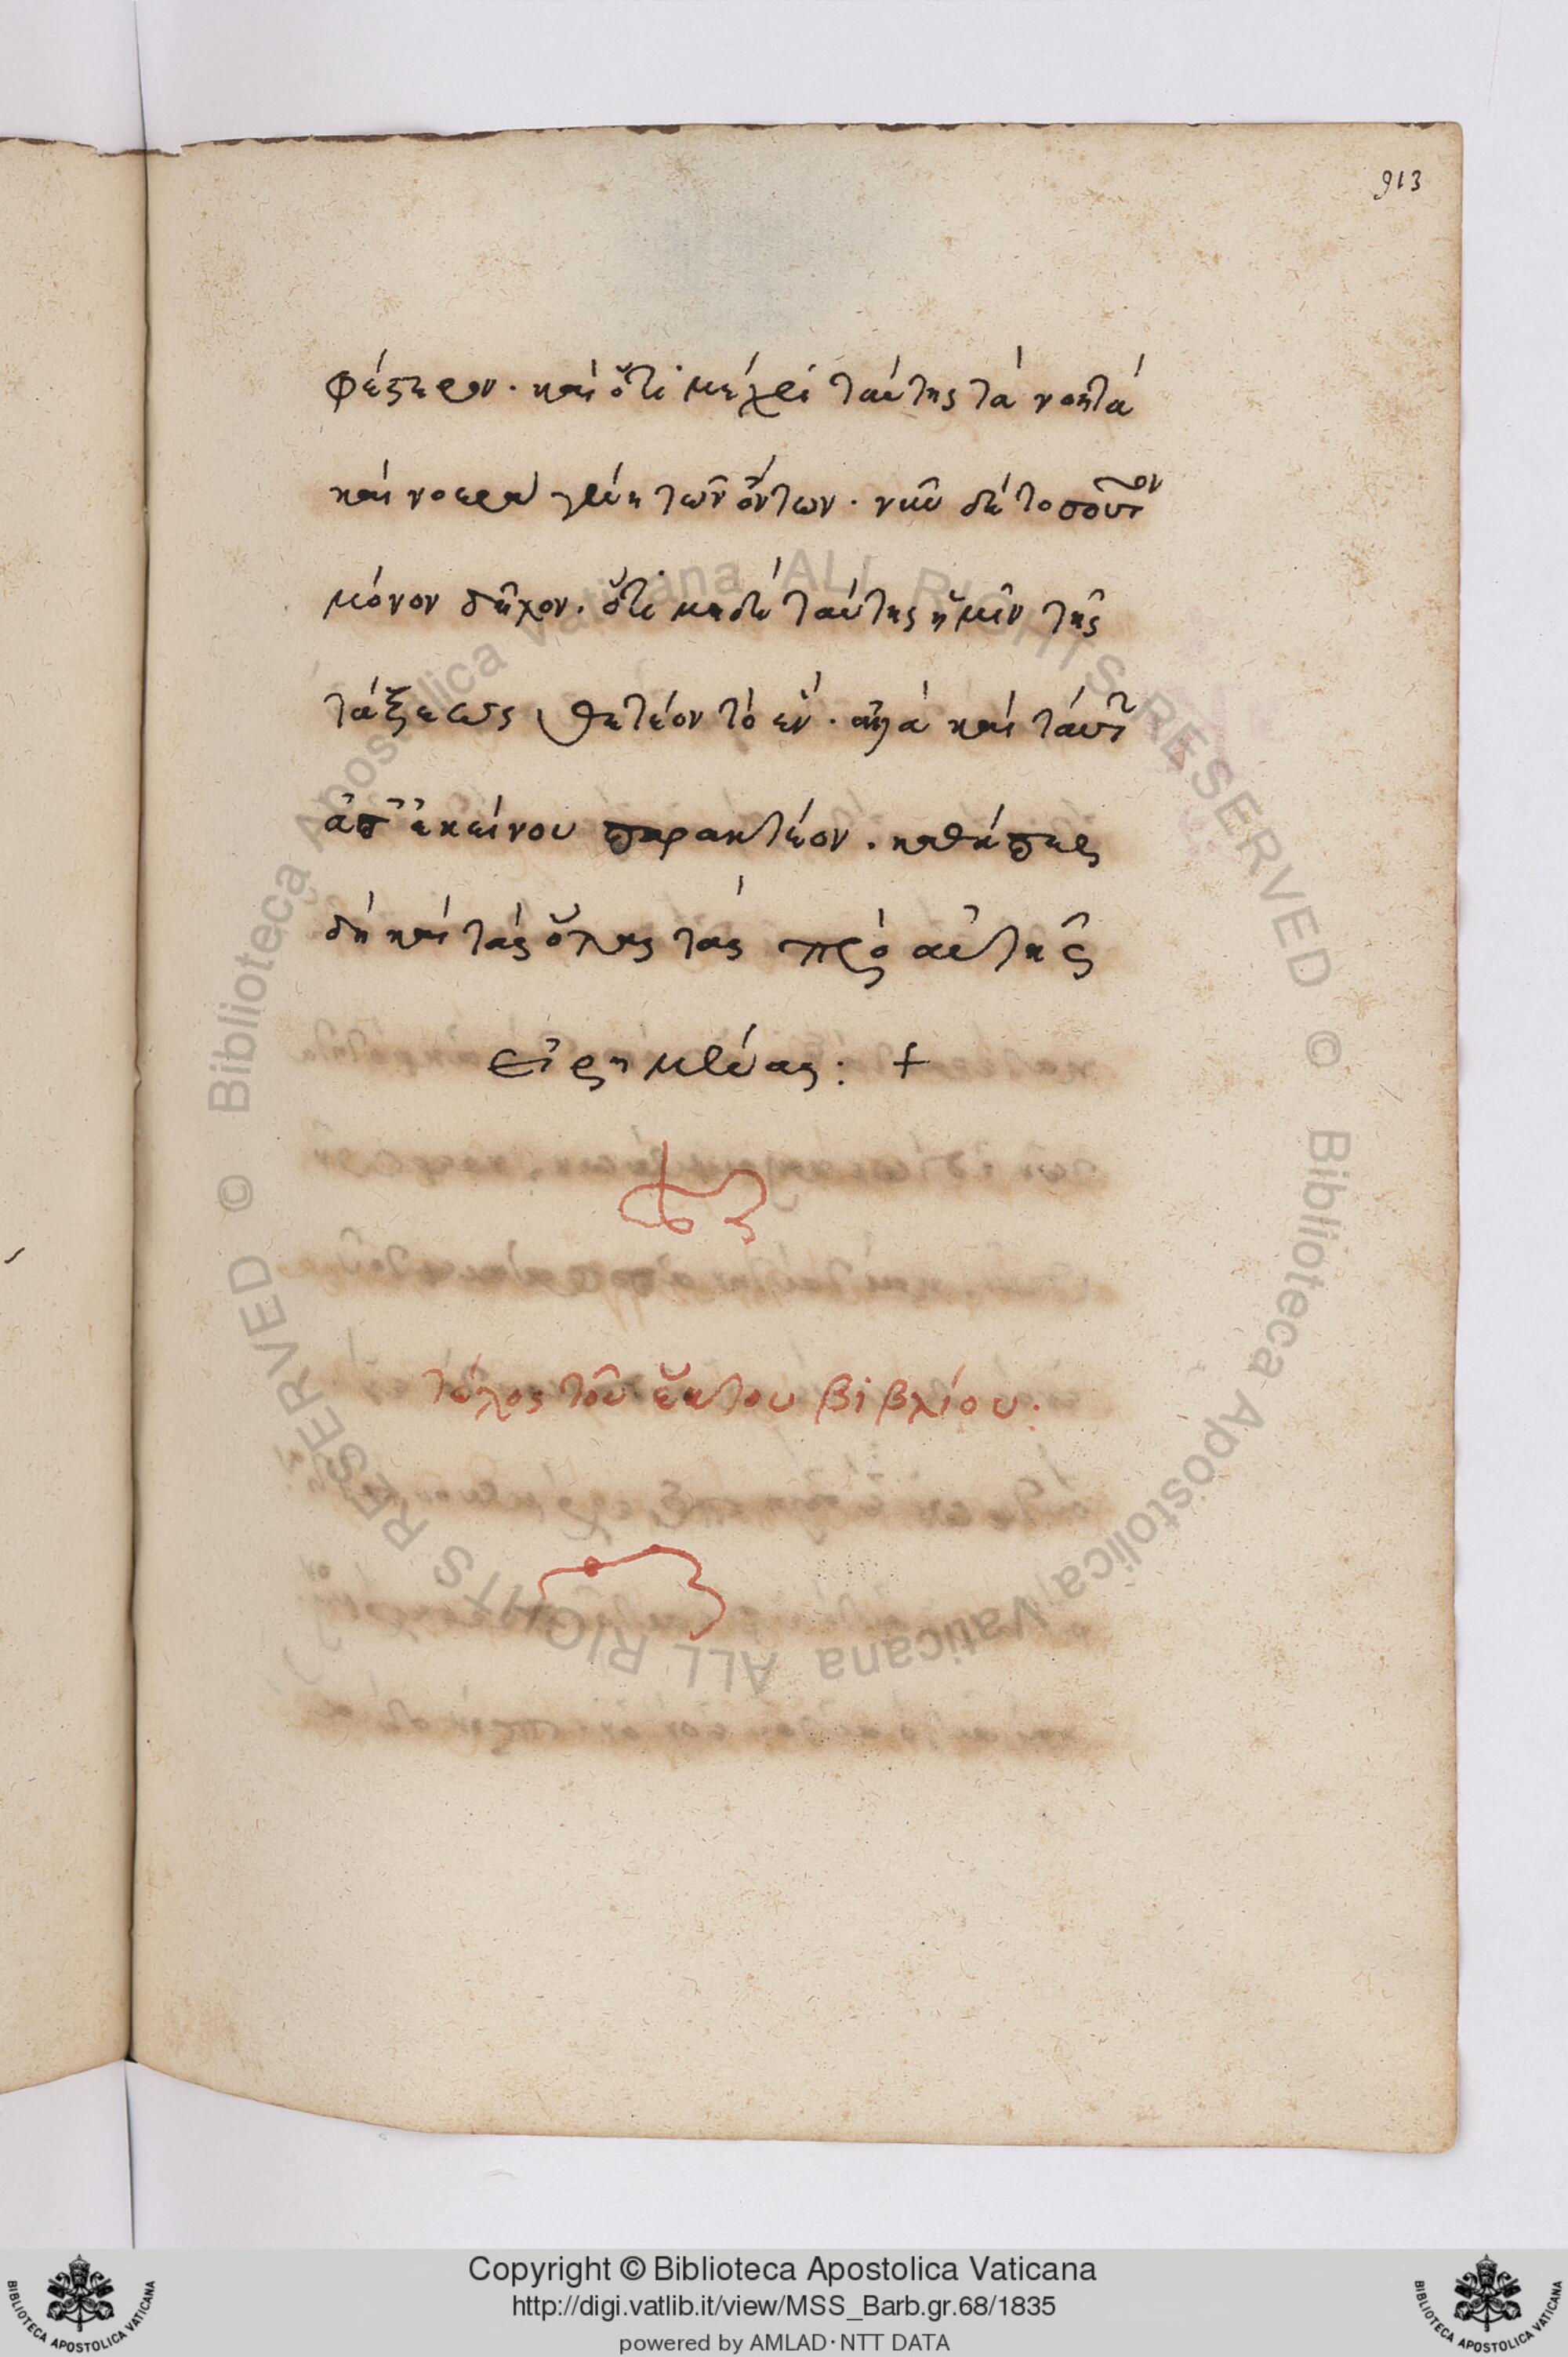 913
φέστερον. καὶ ὅτι μέχρι ταύτης τὰ νοητὰ
καὶ νοερὰ γένη τῶν ὄντων. νῦν δὲ τοσοῦτον
μόνον δῆλον. ὅτι μηδὲ ταύτης ἡμῖν τῆς
τάξεως θετέον τὸ ἕν. ἀλλὰ καὶ ταύτ
ἀπ' ἐκείνου παρακτέον. καθάπερ
δὴ καὶ τὰς ὅλας τὰς πρὸ αὐτῆς
εἰρημένας: +
τέλος τοῦ ἕκτου βιβλίου.
Copyright © Biblioteca Apostolica Vaticana
http://digi.vatlib.it/view/MSS_Barb.gr.68/1835
powered by AMLAD·NTT DATA
© Biblioteca Apostolica Vaticana ALL RIGHTS RESERVED
© Biblioteca Apostolica Vaticana ALL RIGHTS RESERVED
BIBLIOTECA APOSTOLICA VATICANA
BIBLIOTECA APOSTOLICA VATICANA